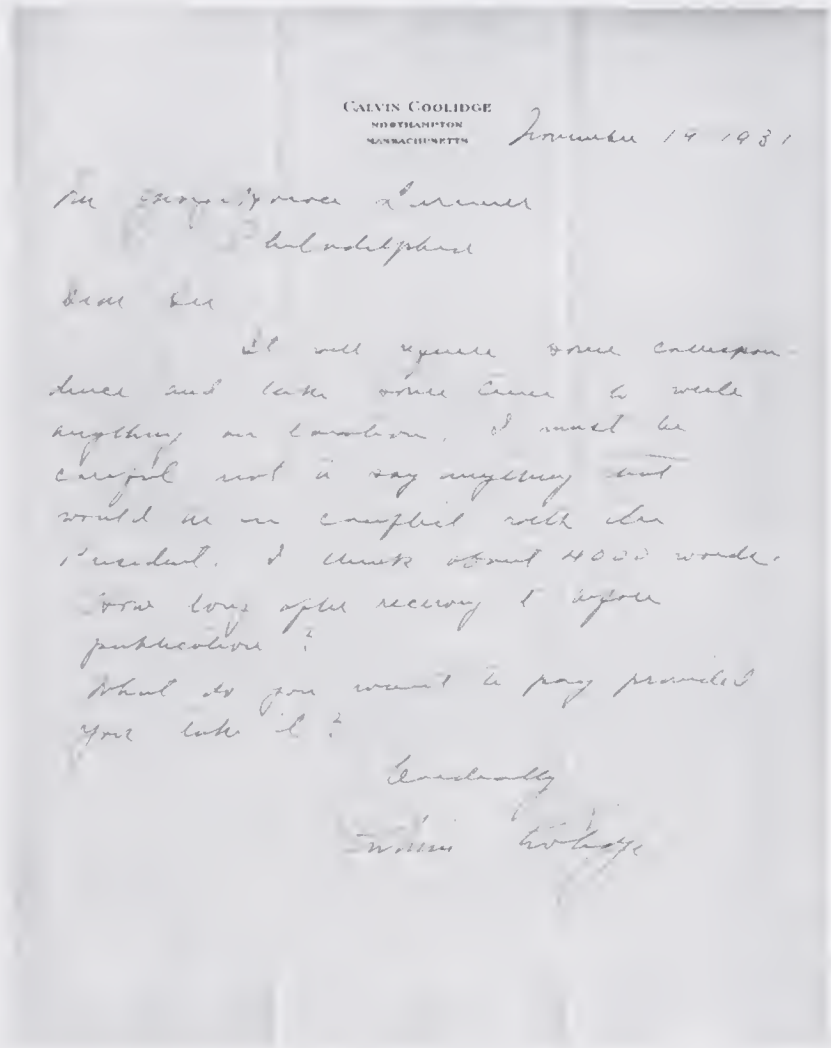 CALVIN COOLIDGE
NORTHAMPTON
MASSACHUSETTS
November 19 1931
Mr George Horace Lorimer
Philadelphia
Dear Sir
It will require some correspon-
dence and take some time to write
anything on taxation. I must be
careful not to say anything that
would be in conflict with the
President. I think about 4000 words.
How long after receiving it before
publication?
What do you want to pay provided
you take it?
Cordially
Calvin Coolidge